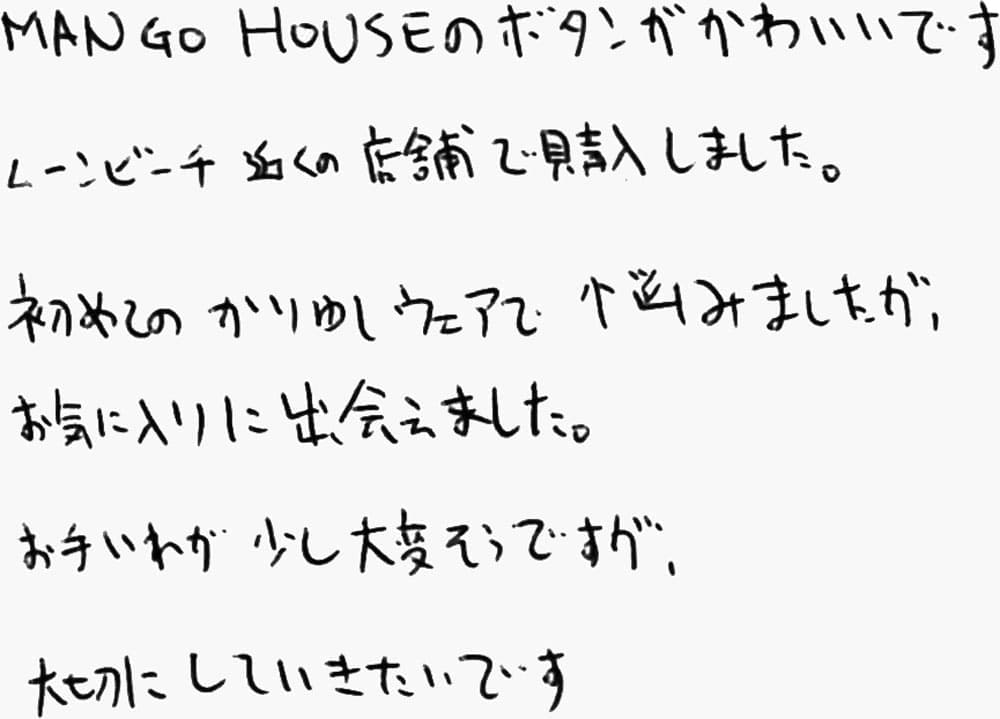 MANGO HOUSEのボタンがかわいいです
ムーンビーチ近くの店舗で購入しました。
初めてのかりゆしウェアで悩みましたが、
お気に入りに出会えました。
お手いれが少し大変そうですが、
大切にしていきたいです